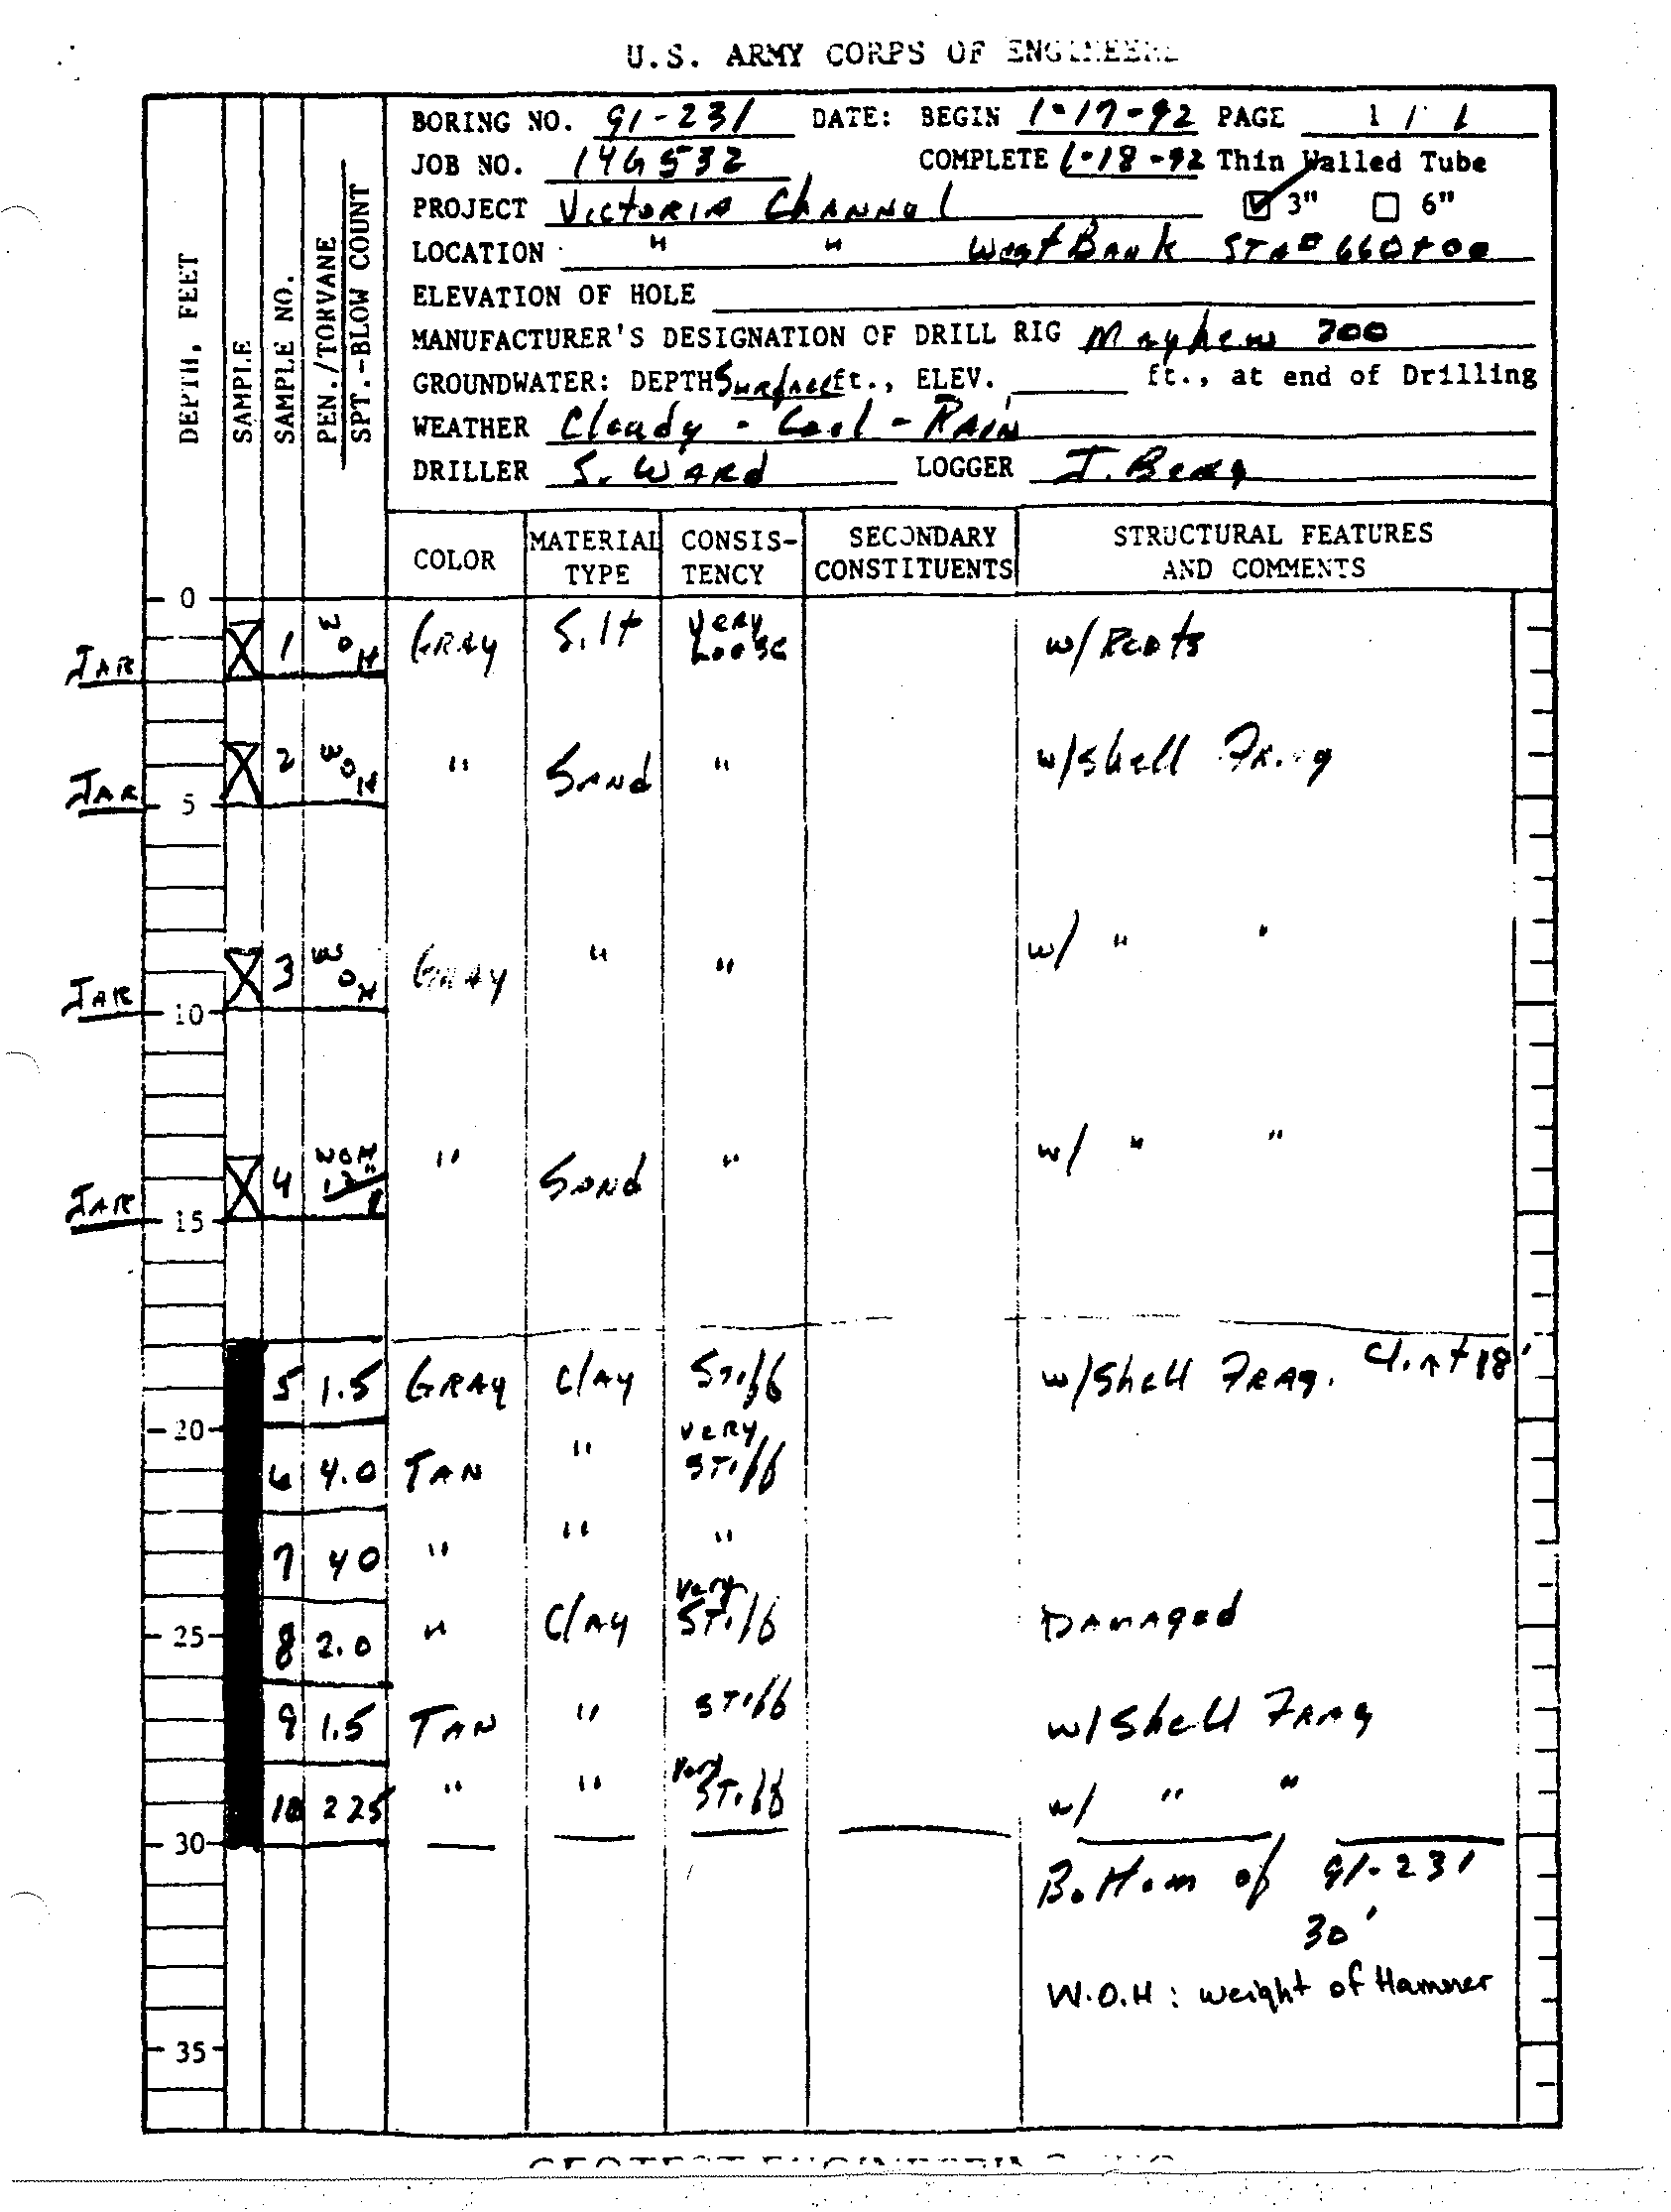 U.S. ARMY CORPS OF ENGINEERS
BORING NO. 91-231 DATE: BEGIN 1-17-92 PAGE 1 / 1
JOB NO. 14G532 COMPLETE 1-18-92 Thin Walled Tube
PROJECT Victoria Channel ☑ 3" ☐ 6"
LOCATION " " West Bank STA# 660+00
ELEVATION OF HOLE
MANUFACTURER'S DESIGNATION OF DRILL RIG Mayhew 200
GROUNDWATER: DEPTH Surface ft., ELEV. ft., at end of Drilling
WEATHER Cloudy - Cool - RAIN
DRILLER S. WARD LOGGER J. Berg
DEPTH, FEET
SAMPLE
SAMPLE NO.
PEN./TORVANE
SPT.-BLOW COUNT
COLOR MATERIAL TYPE CONSIS-TENCY SECONDARY CONSTITUENTS STRUCTURAL FEATURES AND COMMENTS
0
JAR 1 WOH GRAY Silt Very Loose w/ Roots
JAR 2 WOH " SAND " w/ Shell Frag
5
JAR 3 WOH GRAY " " w/ " "
10
JAR 4 WOH 12"/1 " SAND " w/ " "
15
5 1.5 GRAY Clay Stiff w/ Shell FRAG. Cl. at 18'
20
6 4.0 TAN " Very Stiff
7 40 " " "
8 2.0 " Clay Very Stiff Damaged
25
9 1.5 TAN " Stiff w/ Shell FRAG
10 225 " " Very Stiff w/ " "
30
Bottom of 91-231
30'
W.O.H : weight of Hammer
35